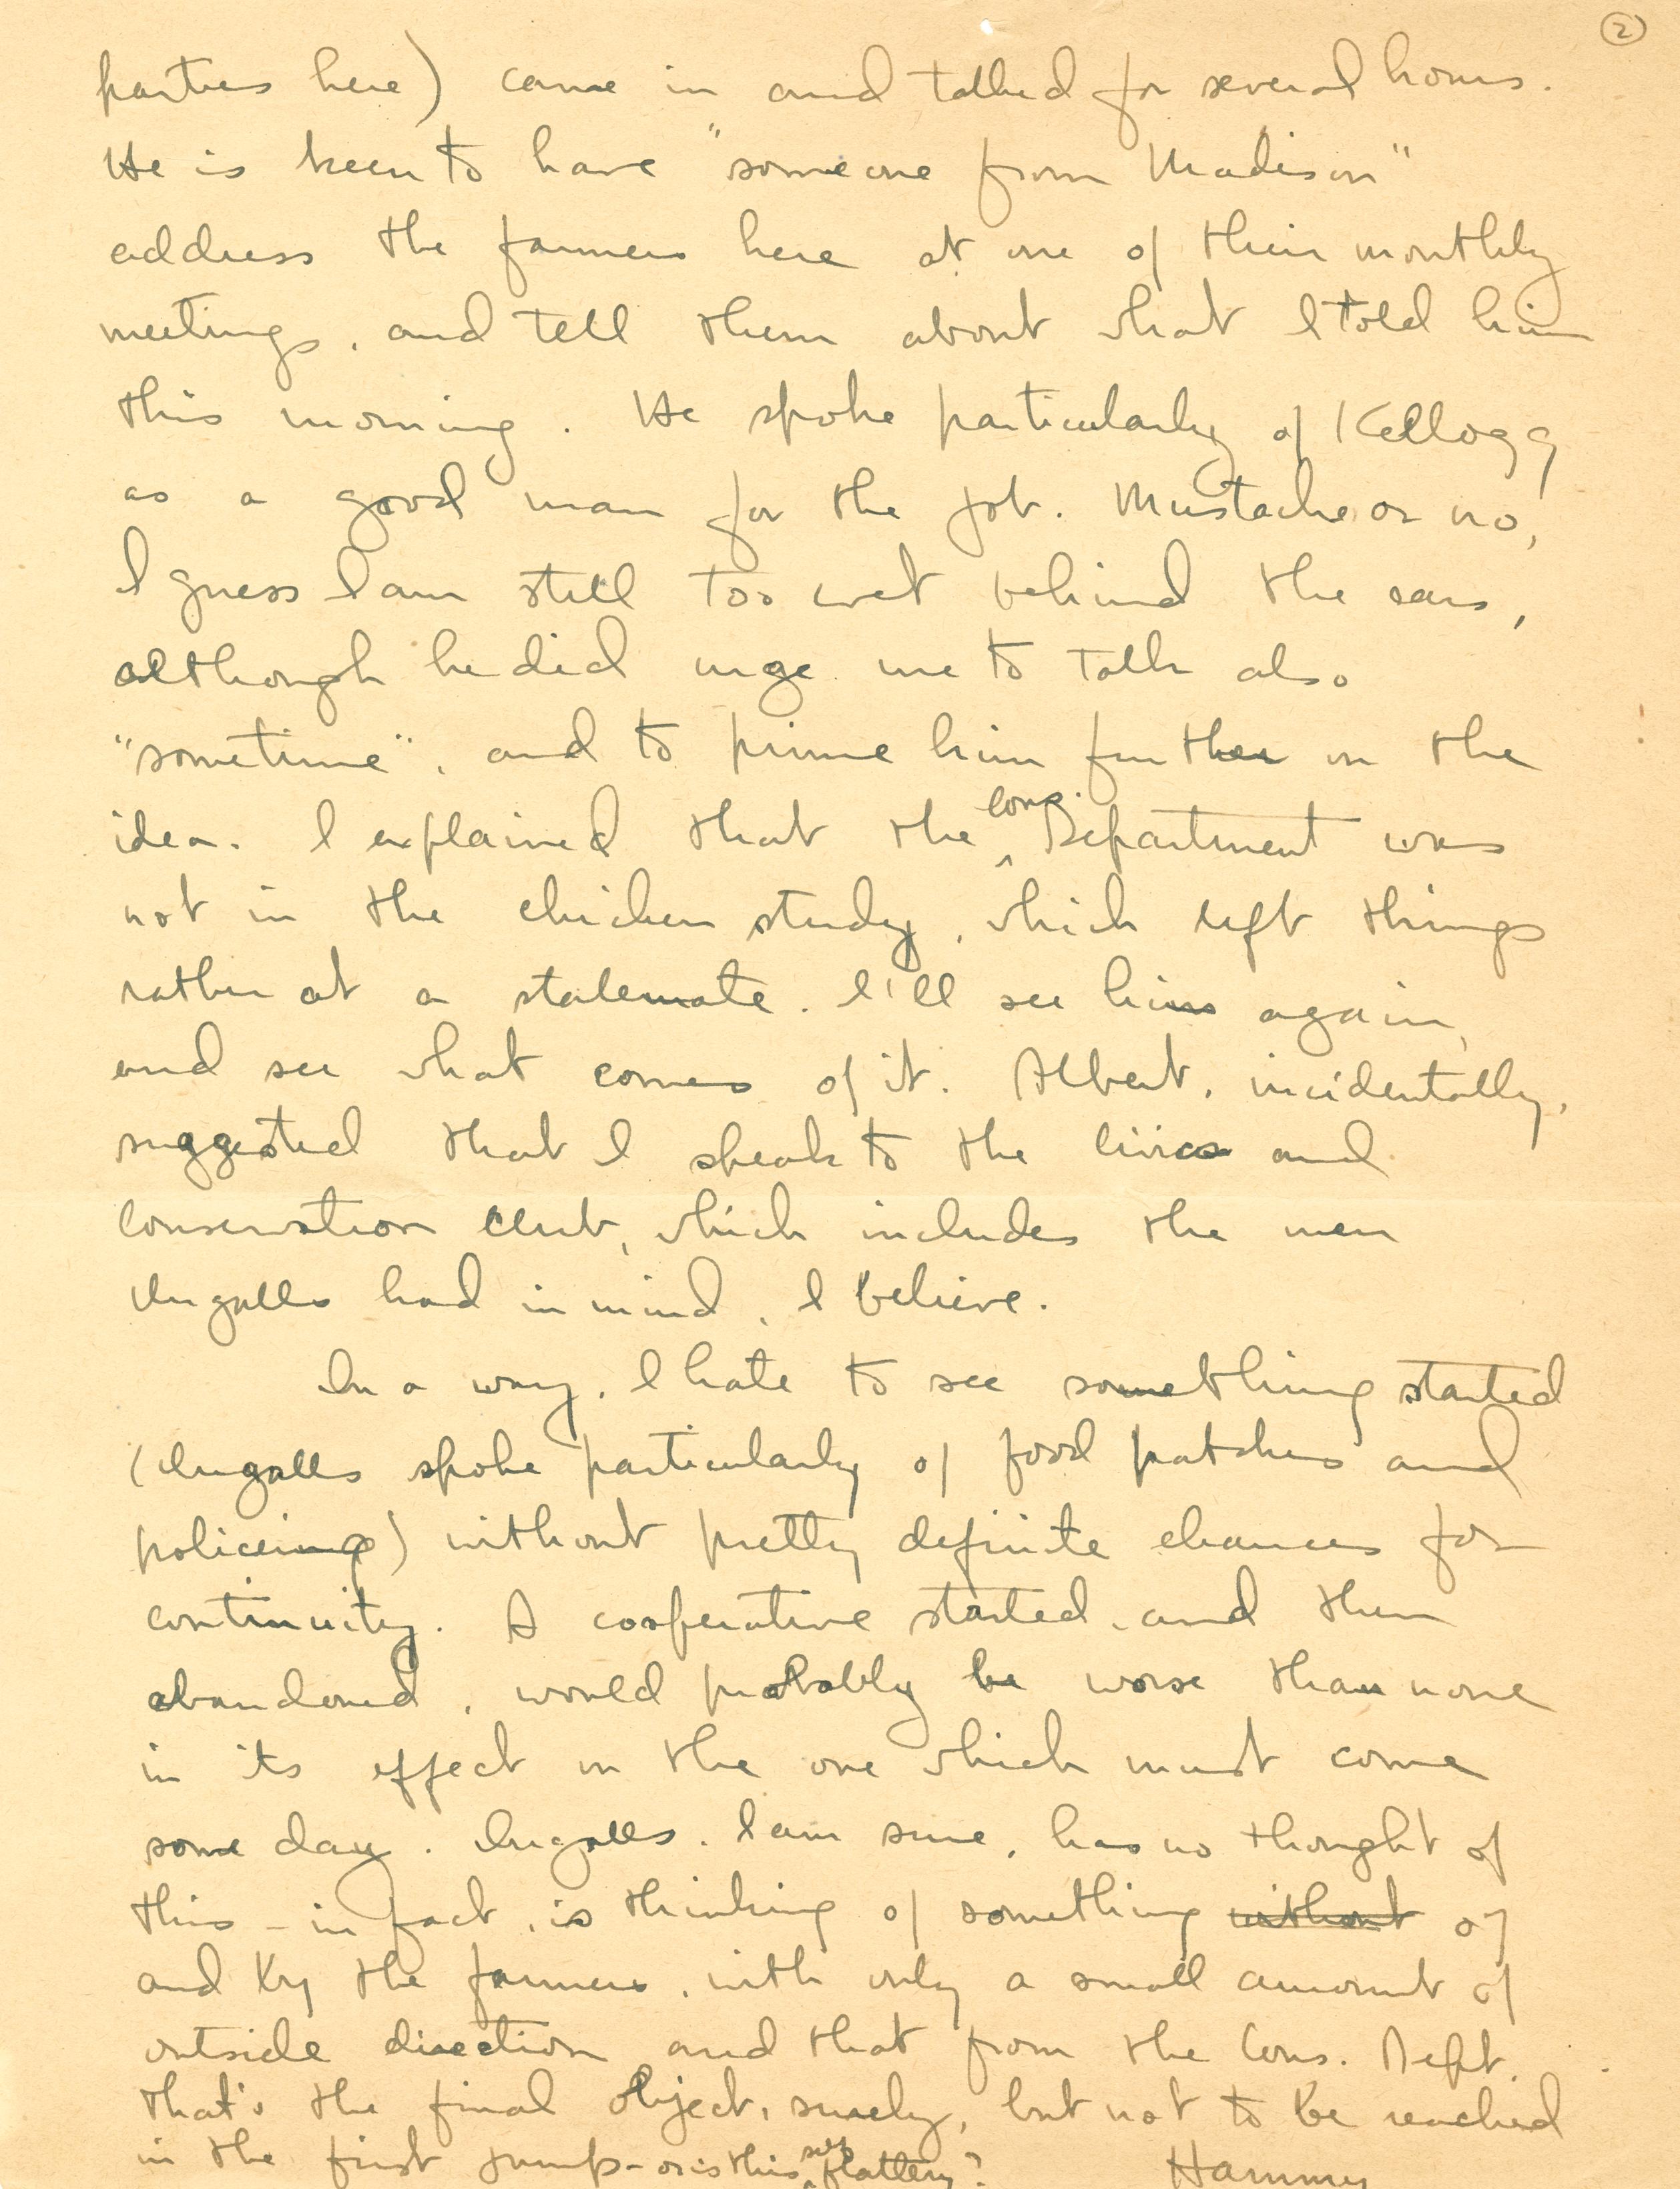 ②
parties here) came in and talked for several hours.
He is keen to have "someone from Madison"
address the farmers here at one of their monthly
meetings, and tell them about what I told him
this morning. He spoke particularly of Kellogg
as a good man for the job. Mustache or no,
I guess I am still too wet behind the ears,
although he did urge me to talk also
"sometime", and to prime him further on the
idea. I explained that the Cons. Department was
not in the chicken study, which left things
rather at a stalemate. I'll see him again,
and see what comes of it. Albert, incidentally,
suggested that I speak to the Civics and
Conservation Club, which includes the men
Ingalls had in mind, I believe.
In a way, I hate to see something started
(Ingalls spoke particularly of food patches and
policeing) without pretty definite chances for
continuity. A cooperative started, and then
abandoned, would probably be worse than none
in its effect on the one which must come
some day. Ingalls, I am sure, has no thought of
this - in fact, is thinking of something without of
and by the farmers, with only a small amount of
outside direction and that from the Cons. Dept.
That's the final object, surely, but not to be reached
in the first jump - or is this self flattery? Hammy